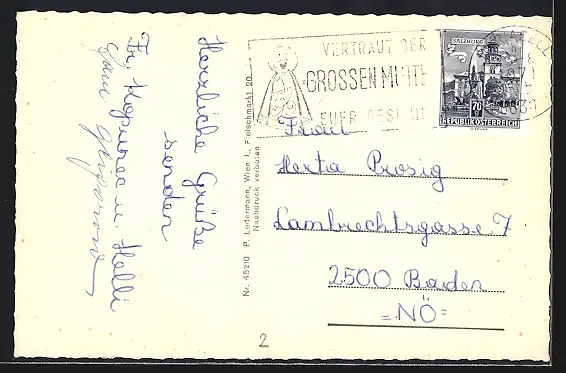 Herzliche Grüße
senden
Fr. Kopurec u. Helli
Nr. 45210 P. Ledermann, Wien I., Fleischmarkt 20
Nachdruck verboten
VERTRAUT DER
GROSSEN MUTTE
EUER GESCHI
SALZBURG
70
REPUBLIK ÖSTERREICH
Frau
Herta Prosig
Lambrechtsgasse 7
2500 Baden
=NÖ=
2